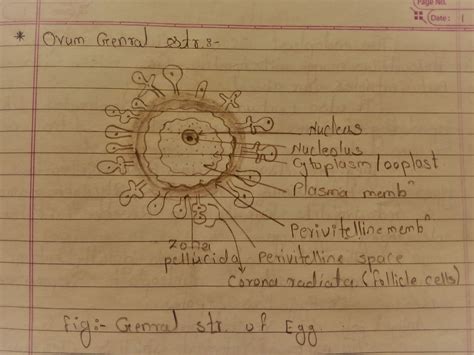 Page No.
Date:
* Ovum Genral str:-
Nucleus
Nucleolus
Cytoplasm/ooplast
Plasma membⁿ
Perivitelline membⁿ
Zona pellucida
Perivitelline space
Corona radiata (follicle cells)
Fig:- Genral str. of Egg.